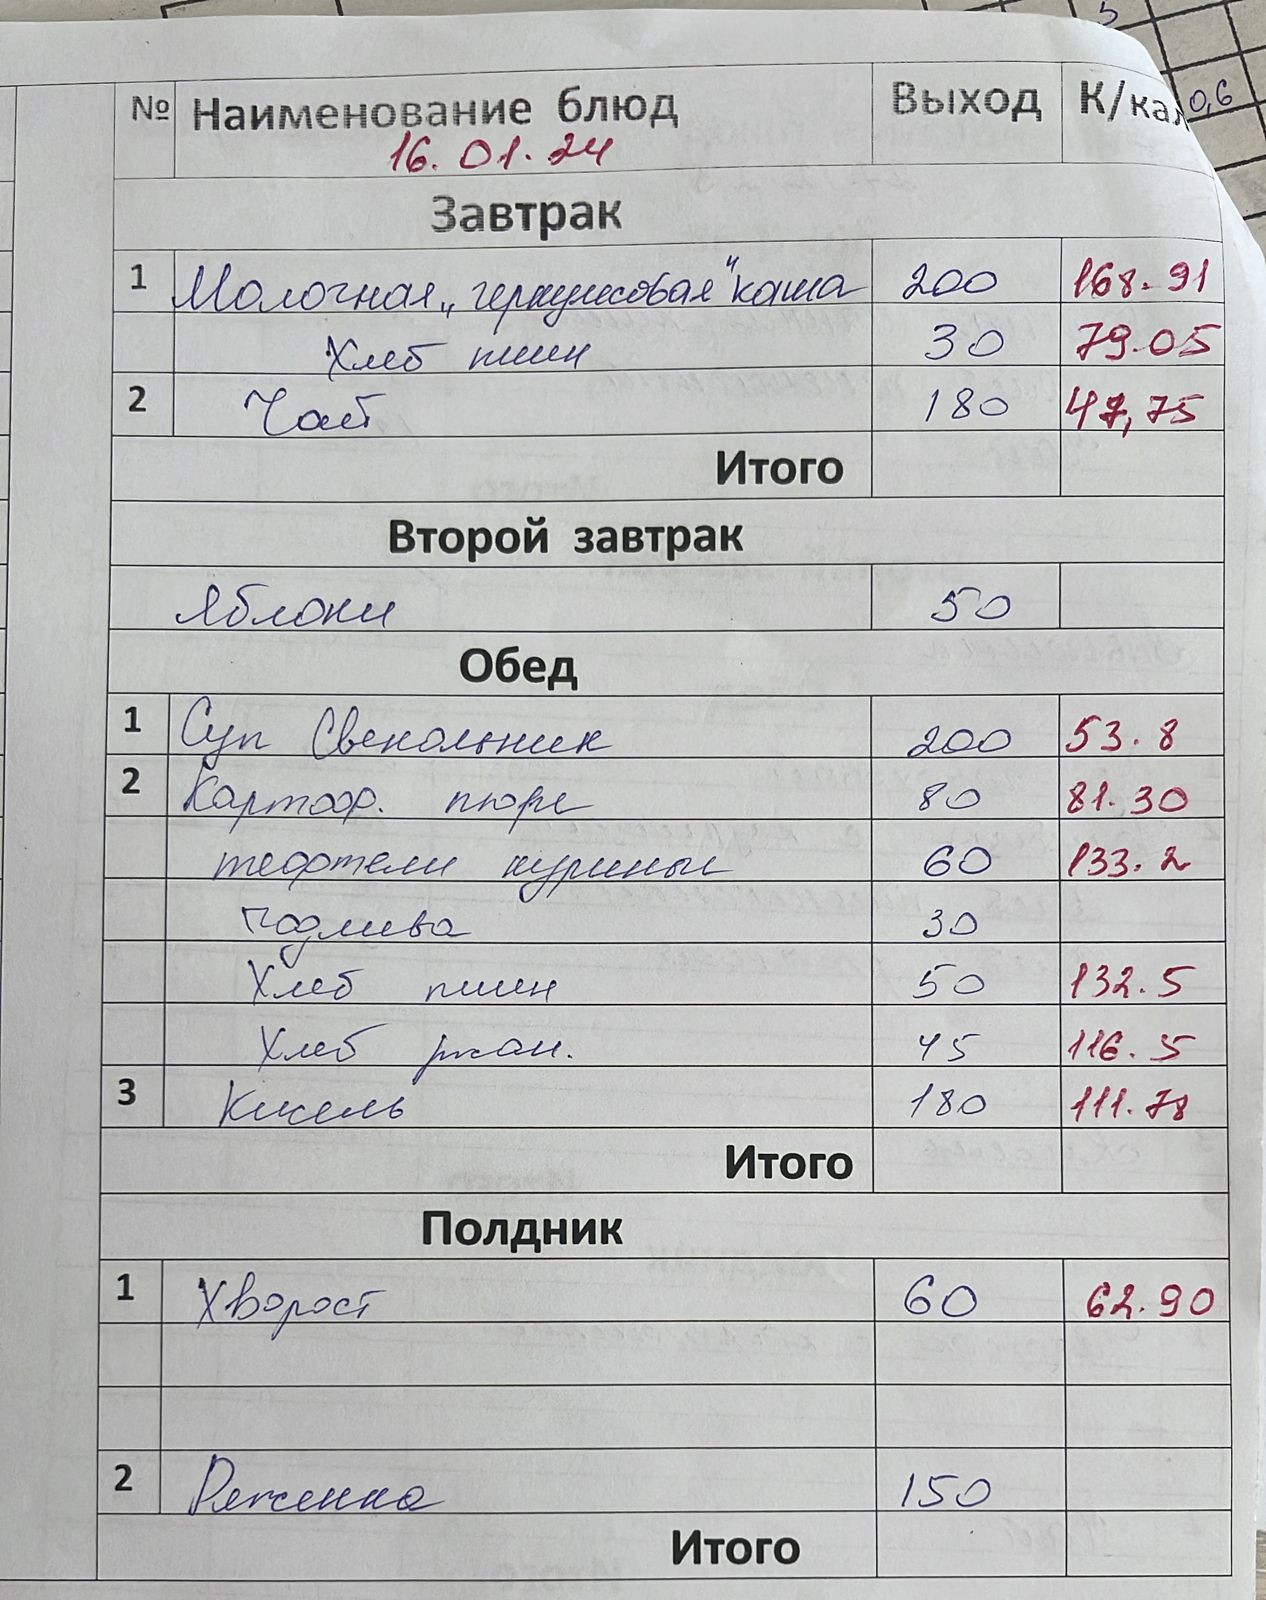 № Наименование блюд Выход К/кал
16.01.24
Завтрак
1 Молочная „геркулесовая" каша 200 168.91
Хлеб пшен 30 79.05
2 Чай 180 47,75
Итого
Второй завтрак
Яблоки 50
Обед
1 Суп Свекольник 200 53.8
2 Картоф. пюре 80 81.30
тефтели куриные 60 133.2
подлива 30
Хлеб пшен 50 132.5
Хлеб ржан. 45 116.5
3 Кисель 180 111.78
Итого
Полдник
1 Хворост 60 62.90
2 Ряженка 150
Итого
0,6